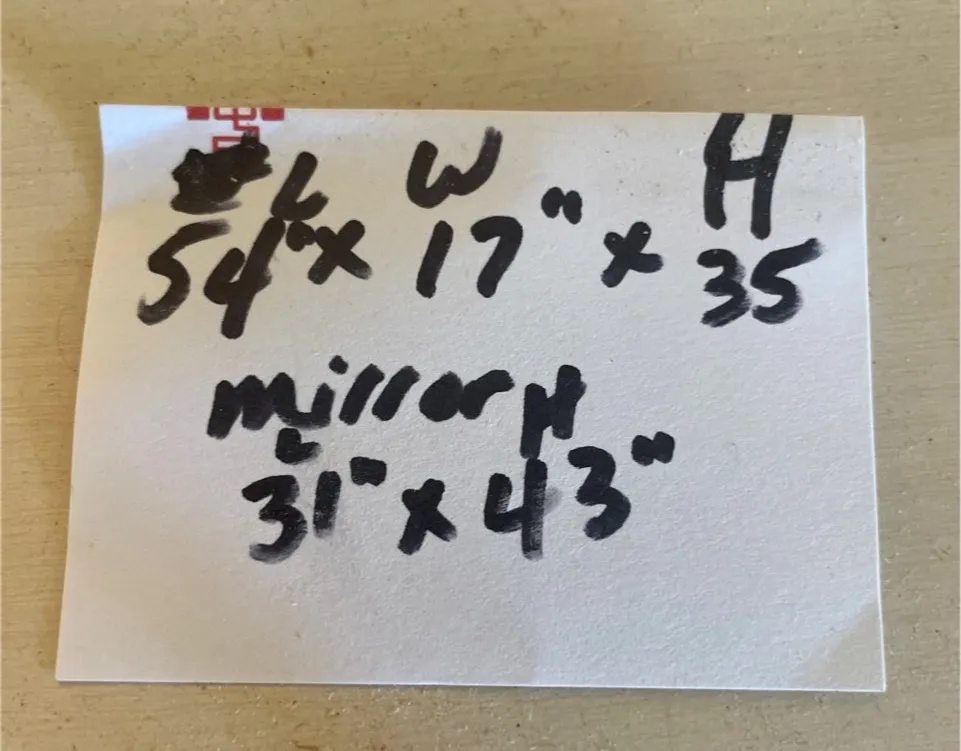 L W H
54" x 17" x 35
mirror
L H
31" x 43"